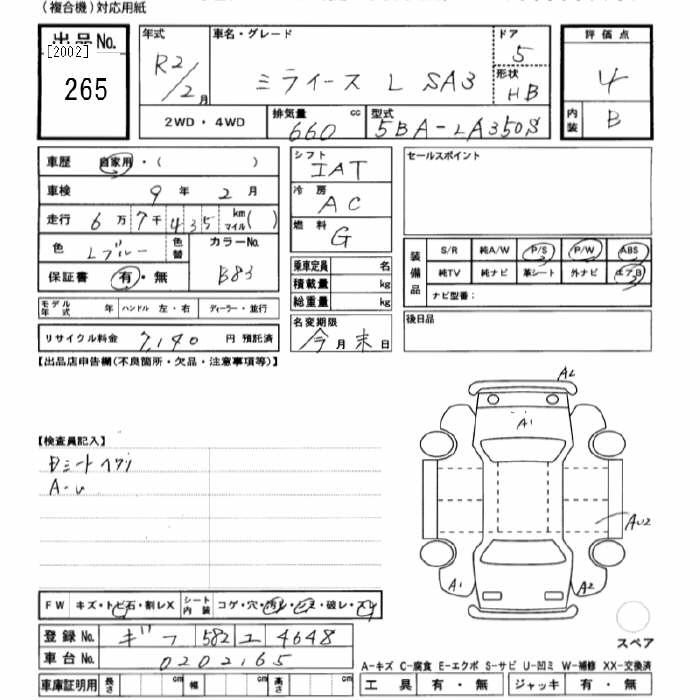 (複合機)対応用紙
出品No.
[2002]
265
年式 R2/2月
車名・グレード ミライース L SA3
ドア 5
形状 HB
評価点 4
内装 B
2WD・4WD
排気量 660 cc
型式 5BA-LA350S
車歴 自家用・( )
車検 9年2月
走行 6万7千435 km マイル( )
色 Lブルー 色替
カラーNo. B83
保証書 有・無
モデル年式 年 ハンドル 左・右 ディーラー・並行
リサイクル料金 7,190 円 預託済
シフト IAT
冷房 AC
燃料 G
乗車定員 名
積載量 kg
総重量 kg
名変期限 今月末日
セールスポイント
装備品
S/R 純A/W P/S P/W ABS
純TV 純ナビ 革シート 外ナビ エアB
ナビ型番:
後日品
【出品店申告欄(不良箇所・欠品・注意事項等)】
【検査員記入】
A・U
A2
A1
AU2
A1
A2
スペア
FW キズ・トビ石・割レX
シート内装 コゲ・穴・汚レ・シミ・破レ・スレ
登録No. ギフ 582 ユ 4648
車台No. 0202165
車庫証明用 長さ cm 幅 cm 高さ cm
A-キズ C-腐食 E-エクボ S-サビ U-凹ミ W-補修 XX-交換済
工具 有・無 ジャッキ 有・無